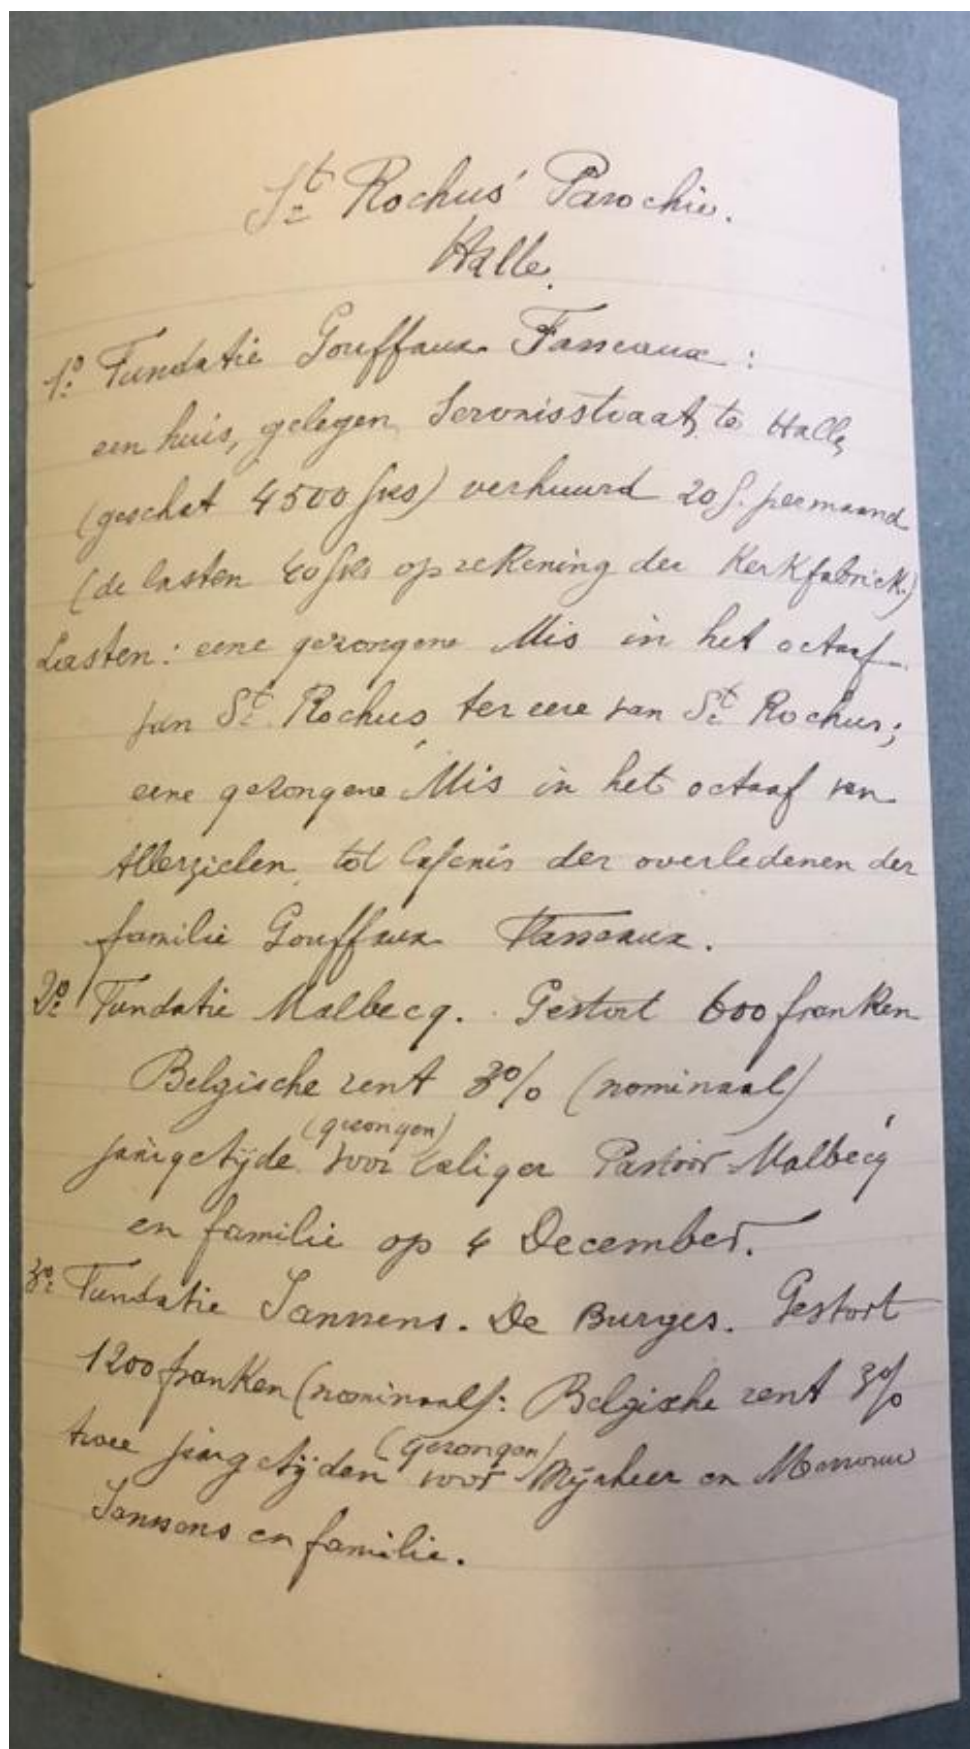 St Rochus' Parochie.
Halle.
1º: Fundatie Gouffaux Fasseaux :
een huis, gelegen, Servaisstraat, te Halle,
(geschat 4500 fks) verhuurd 20 f. per maand
(de lasten 40 fks op rekening der Kerkfabriek.)
Lasten : eene gezongene Mis in het octaaf
van St Rochus, ter eere van St Rochus ;
eene gezongene Mis in het octaaf van
Allerzielen, tot lafenis der overledenen der
familie Gouffaux Fasseaux.
2º: Fundatie Malbecq. Gestort 600 franken
Belgische rent 3% (nominaal)
jaargetijde (gezongen) voor zaliger Pastoor Malbecq
en familie op 4 December.
3º: Fundatie Janssens. De Burges. Gestort
1200 franken (nominaal): Belgische rent 3%
twee jaargetijden (gezongen) voor Mijnheer en Mevrouw
Janssens en familie.